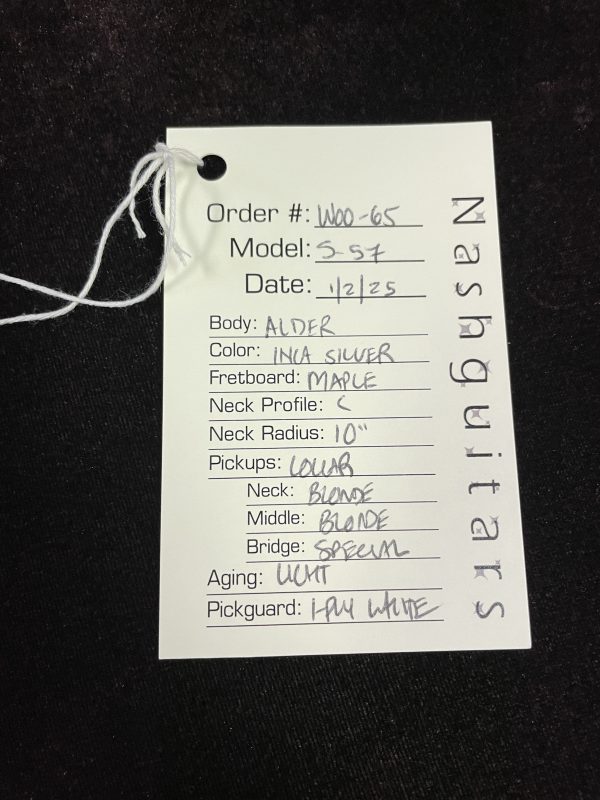 Order #: WOO-65
Model: S-57
Date: 1/2/25
Body: ALDER
Color: INCA SILVER
Fretboard: MAPLE
Neck Profile: C
Neck Radius: 10"
Pickups: LOLLAR
Neck: BLONDE
Middle: BLONDE
Bridge: SPECIAL
Aging: LIGHT
Pickguard: 1-PLY WHITE
Nashguitars